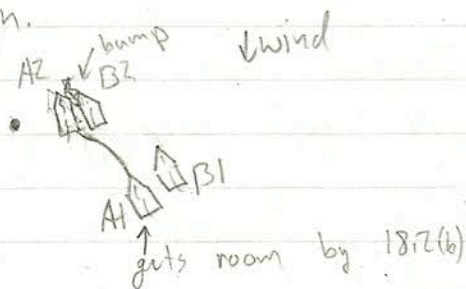 n.
bump
↓wind
A2
B2
B1
A1
gets room by 18.2(b)